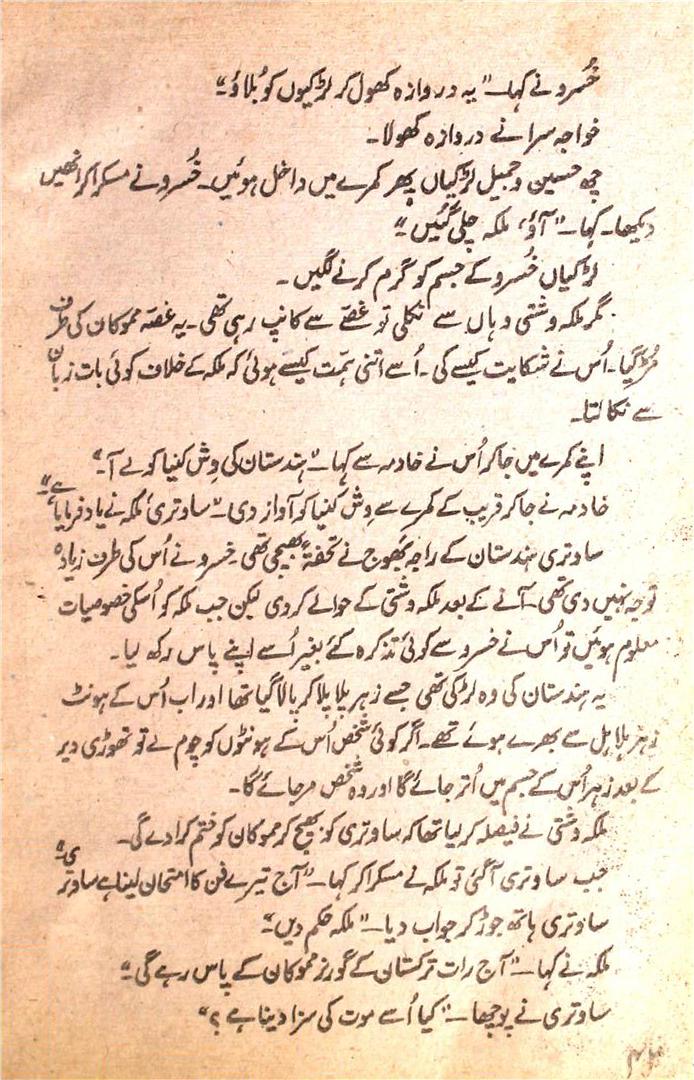 خُسرو نے کہا۔ "یہ دروازہ کھول کر لڑکیوں کو بُلاؤ۔"
خواجہ سرا نے دروازہ کھولا۔
چھ حسین و جمیل لڑکیاں پھر کمرے میں داخل ہوئیں۔ خُسرو نے مسکرا کر انھیں
دیکھا۔ کہا۔ "آؤ، ملکہ چلی گئیں۔"
لڑکیاں خُسرو کے جسم کو گرم کرنے لگیں۔
مگر ملکہ وشتی وہاں سے نکلی تو غصّے سے کانپ رہی تھی۔ یہ غصّہ مموکان کی طرف
مُڑ گیا۔ اُس نے شکایت کیسے کی۔ اُسے اتنی ہمّت کیسے ہوئی کہ ملکہ کے خلاف کوئی بات زبان
سے نکالتا۔
اپنے کمرے میں جا کر اُس نے خادمہ سے کہا۔ "ہندستان کی وِش کنیا کو لے آ۔"
خادمہ نے جا کر قریب کے کمرے سے وِش کنیا کو آواز دی۔ "ساوتری، ملکہ نے یاد فرمایا ہے۔"
ساوتری ہندستان کے راجہ بھوج نے تحفتہً بھیجی تھی۔ خسرو نے اُس کی طرف زیادہ
توجہ نہیں دی تھی۔ آنے کے بعد ملکہ وشتی کے حوالے کر دی لیکن جب ملکہ کو اُسکی خصوصیات
معلوم ہوئیں تو اُس نے خسرو سے کوئی تذکرہ کئے بغیر اُسے اپنے پاس رکھ لیا۔
یہ ہندستان کی وہ لڑکی تھی جسے زہر پلا پلا کر پالا گیا تھا اور اب اُس کے ہونٹ
زہر ہلاہل سے بھرے ہوئے تھے۔ اگر کوئی شخص اُس کے ہونٹوں کو چوم لے تو تھوڑی دیر
کے بعد زہر اُس کے جسم میں اُتر جائے گا اور وہ شخص مر جائے گا۔
ملکہ وشتی نے فیصلہ کر لیا تھا کہ ساوتری کو بھیج کر مموکان کو ختم کرا دے گی۔
جب ساوتری آ گئی تو ملکہ نے مسکرا کر کہا۔ "آج تیرے فن کا امتحان لینا ہے ساوتری۔"
ساوتری ہاتھ جوڑ کر جواب دیا۔ "ملکہ حکم دیں۔"
ملکہ نے کہا۔ "آج رات ترکستان کے گورنر مموکان کے پاس رہے گی۔"
ساوتری نے پوچھا۔ "کیا اُسے موت کی سزا دینا ہے؟"